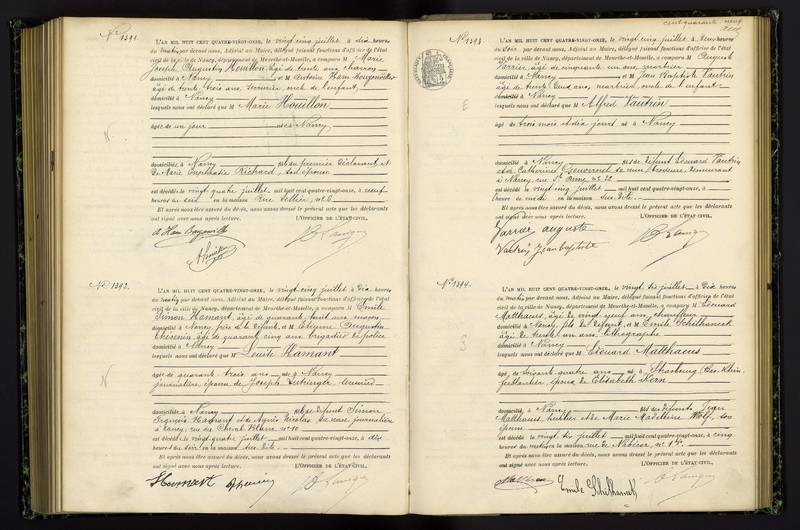 Nº 1391.
L'AN MIL HUIT CENT QUATRE-VINGT-ONZE, le vingt cinq juillet à dix heures
du matin par devant nous, Adjoint au Maire, délégué faisant fonctions d'officier de l'état
civil de la ville de Nancy, département de Meurthe-et-Moselle, a comparu M Marie
Joseph Augustin Houillon, âgé de trente ans
domicilié à Nancy et M Antoine
âgé de trente trois ans, serrurier, oncle de l'enfant,
domicilié à Nancy
lesquels nous ont déclaré que M Marie Houillon
âgée de un jour née à Nancy
N.
domiciliée à Nancy fille du premier déclarant et
de Marie Euphrasie Richard, son épouse
est décédée le vingt quatre juillet mil huit cent quatre-vingt-onze, à neuf
heures du soir en la maison rue Sellier, nº 6
Et après nous être assuré du décès, nous avons dressé le présent acte que les déclarants
ont signé avec nous après lecture. L'OFFICIER DE L'ÉTAT-CIVIL,
Nº 1392.
L'AN MIL HUIT CENT QUATRE-VINGT-ONZE, le vingt cinq juillet à dix heures
du matin par devant nous, Adjoint au Maire, délégué faisant fonctions d'officier de l'état
civil de la ville de Nancy, département de Meurthe-et-Moselle, a comparu M Emile
Simon Hamant, âgé de quarante huit ans, maçon,
domicilié à Nancy, frère de la défunte, et M Etienne Augustin
âgé de quarante cinq ans brigadier de police
domicilié à Nancy
lesquels nous ont déclaré que M Louise Hamant
N
âgée de quarante trois ans née à Nancy
journalière, épouse de Joseph
domiciliée à Nancy fille de défunt Simon
François Hamant et de Agnès Nicolas, sa veuve, journalière
à Nancy, rue du Cheval Blanc, nº 10
est décédée le vingt quatre juillet mil huit cent quatre-vingt-onze, à dix
heures du soir en la maison
Et après nous être assuré du décès, nous avons dressé le présent acte que les déclarants
ont signé avec nous après lecture. L'OFFICIER DE L'ÉTAT-CIVIL,
Hamant
cent quarante neuf
Nº 1393.
L'AN MIL HUIT CENT QUATRE-VINGT-ONZE, le vingt cinq juillet à deux heures
du soir par devant nous, Adjoint au Maire, délégué faisant fonctions d'officier de l'état
civil de la ville de Nancy, département de Meurthe-et-Moselle, a comparu M Auguste
Varrier, âgé de cinquante un ans, marbrier
domicilié à Nancy et M Jean Baptiste Vautrin
âgé de trente deux ans, marbrier, oncle de l'enfant
domicilié à Nancy
lesquels nous ont déclaré que M Alfred Vautrin
E
âgé de trois mois et dix jours né à Nancy
domicilié à Nancy fils de défunt Edouard Vautrin
et de Catherine sa veuve demeurant
à Nancy, rue Sr Anne nº 22
est décédé le vingt cinq juillet mil huit cent quatre-vingt-onze, à
heures de midi en la maison rue dite
Et après nous être assuré du décès, nous avons dressé le présent acte que les déclarants
ont signé avec nous après lecture. L'OFFICIER DE L'ÉTAT-CIVIL,
Varrier auguste
Vautrin Jean baptiste
Nº 1394.
L'AN MIL HUIT CENT QUATRE-VINGT-ONZE, le vingt six juillet à dix heures
du matin par devant nous, Adjoint au Maire, délégué faisant fonctions d'officier de l'état
civil de la ville de Nancy, département de Meurthe-et-Moselle, a comparu M Edouard
Matthaeus, âgé de vingt neuf ans, chauffeur
domicilié à Nancy, fils du défunt, et M Emile Schilhaneck
âgé de trente un ans, lithographe
domicilié à Nancy
lesquels nous ont déclaré que M Edouard Matthaeus
âgé de soixante quatre ans né à Strasbourg (Bas-Rhin)
ferblantier, époux de Elisabeth Kern
domicilié à Nancy fils des défunts Jean
Matthaeus, huissier et de Marie Madeleine Wolf, son
épouse
est décédé le vingt six juillet mil huit cent quatre-vingt-onze, à cinq
heures du matin en la maison rue de
Et après nous être assuré du décès, nous avons dressé le présent acte que les déclarants
ont signé avec nous après lecture. L'OFFICIER DE L'ÉTAT-CIVIL,
Matthaeus Emile Schilhaneck